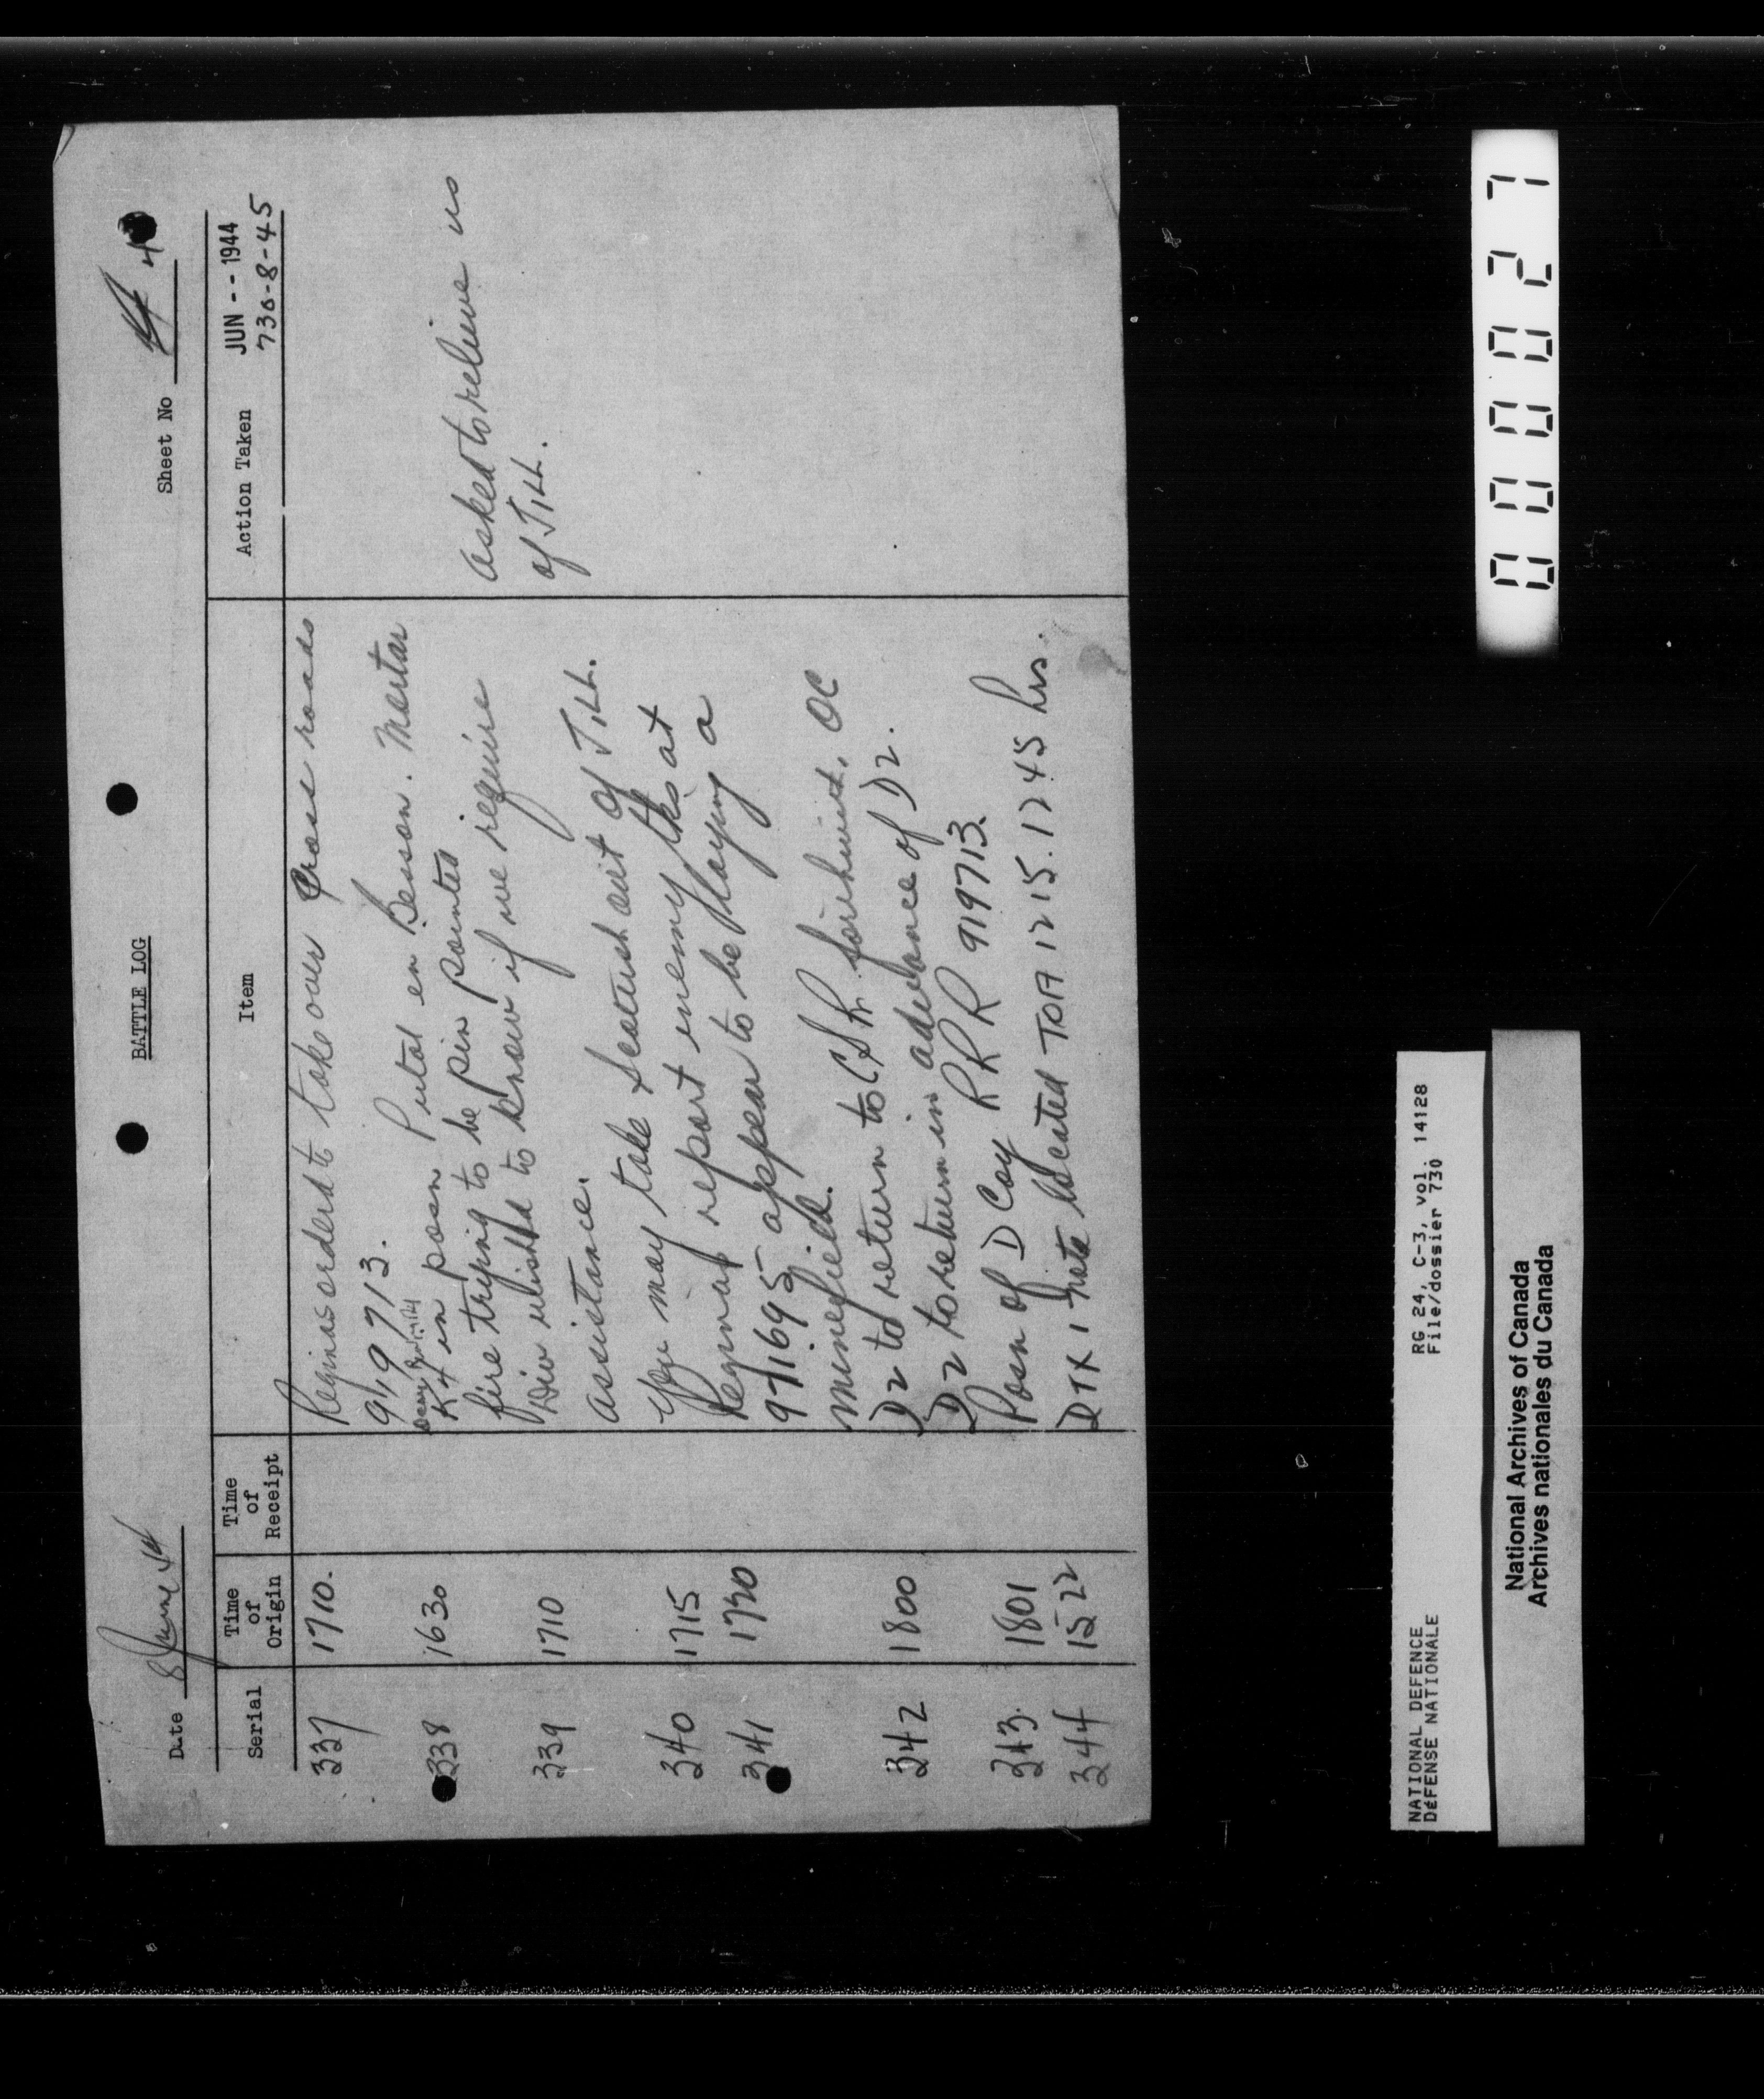 BATTLE LOG
Date 8 June 44
Sheet No 4
Serial
Time of Origin
Time of Receipt
Item
Action Taken
JUN -- 1944
730-8-45
337 1710. Reginas ordered to take over cross roads
919713.
338 1630 K4 in posn Putot en Besson. Mortar
fire trying to be pin pointed
339 1710 Div wishes to know if we require
assistance.
asked to relieve us
of Till.
340 1715 You may take Scottish out of Till.
341 1720 Reginas report enemy tks at
971695 appear to be laying a
minefield.
342 1800 D2 to return to CSR forthwith. OC
D2 to return in advance of D2.
343. 1801 Posn of D Coy RRR 919713.
344 1522 DTK 1 located TOA 1215. 1245 hrs.
0000027
NATIONAL DEFENCE
DÉFENSE NATIONALE
RG 24, C-3, vol. 14128
File/dossier 730
National Archives of Canada
Archives nationales du Canada